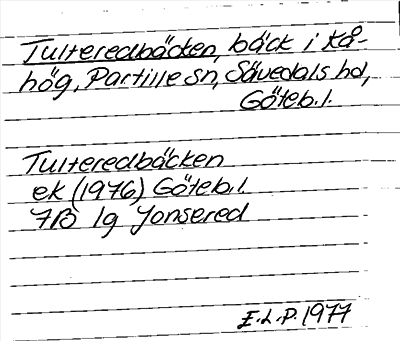 Tulteredbäcken, bäck i Kå-
hög, Partille sn, Sävedals hd,
Göteb.l.
Tulteredbäcken
ek (1976) Göteb.l.
7B 1g Jonsered
E.L.P. 1977